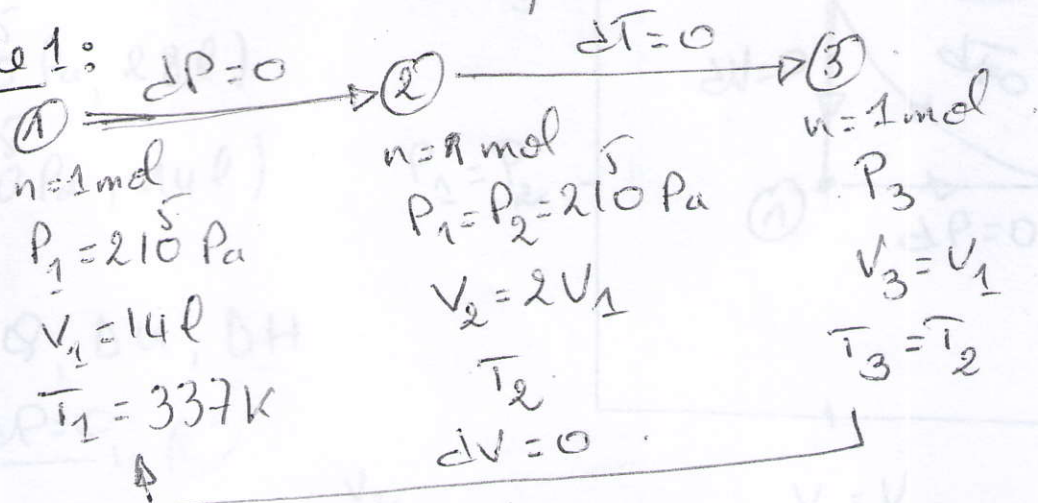 e 1:
dP=0
dT=0
①
②
③
n=1mol
P₁=2 10⁵ Pa
V₁=14 l
T₁ = 337K
n=1 mol
P₁=P₂=2 10⁵ Pa
V₂=2V₁
T₂
n=1 mol
P₃
V₃=V₁
T₃=T₂
dV=0